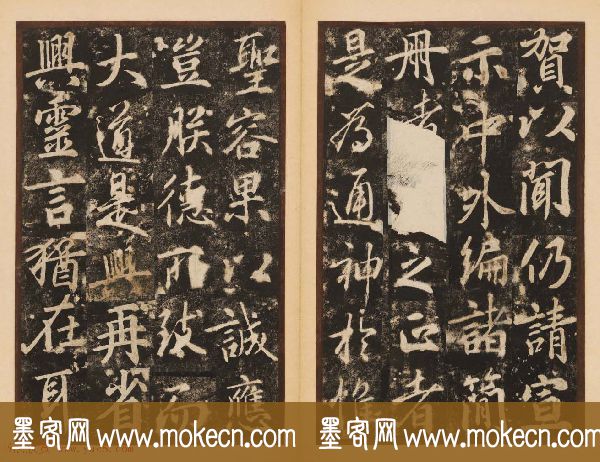 賀以聞仍請宣
示中外編諸簡
冊 之正者
是為通神於惟
聖容果以誠應
豈朕德所致而
大道是興再省
興靈言猶在耳
墨客网 www.mokecn.com
墨客网 www.mokecn.com